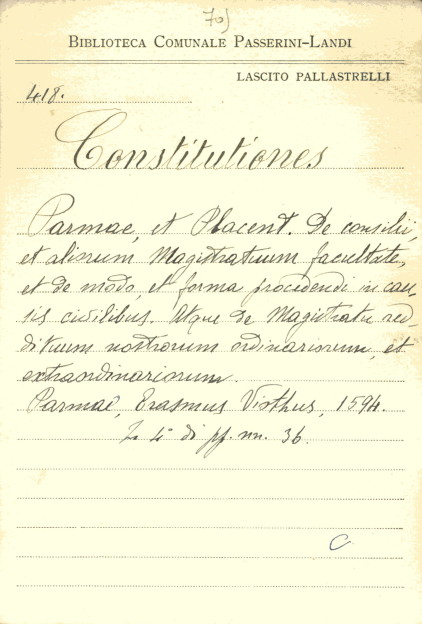 70)
BIBLIOTECA COMUNALE PASSERINI-LANDI
LASCITO PALLASTRELLI
418.
Constitutiones
Parmae, et Placent. De consilii,
et aliorum Magistratuum facultate,
et de modo, et forma procedendi in cau-
sis civilibus. Atque de Magistratu red-
dituum nostrorum ordinariorum, et
extraordinariorum.
Parmae, Erasmus Viothus, 1594.
In 4° di pp. nn. 36.
C